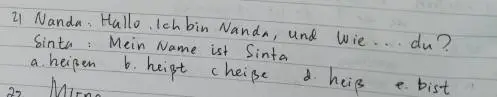 21 Nanda. Hallo. Ich bin Nanda, und wie ... du?
Sinta : Mein Name ist Sinta
a. heißen b. heißt c heiße d. heiß e. bist
22